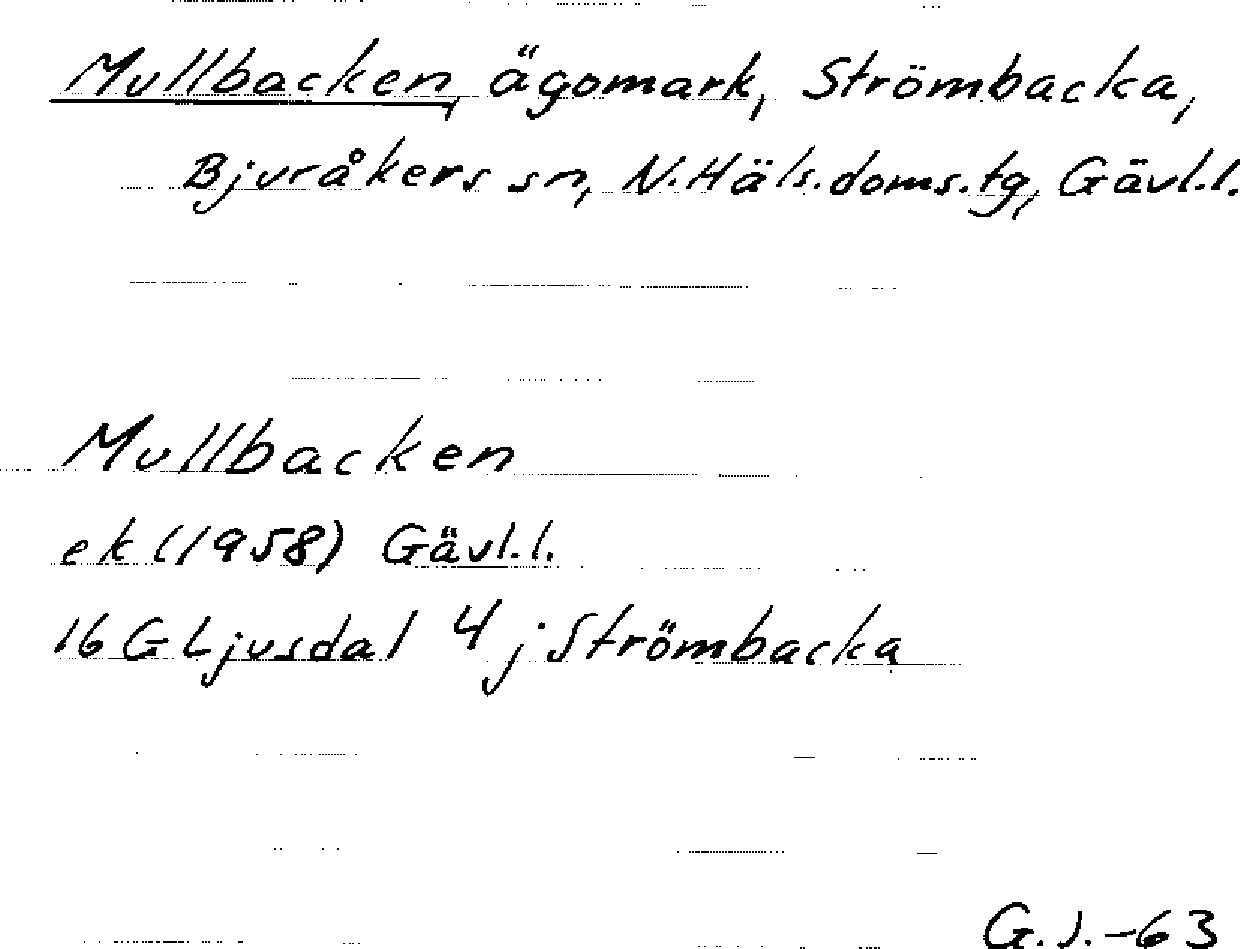 Mullbacken, ägomark, Strömbacka,
Bjuråkers sn, N.Häls.doms.tg, Gävl.l.
Mullbacken
ek (1958) Gävl.l.
16 G Ljusdal 4 j Strömbacka
G.J.-63